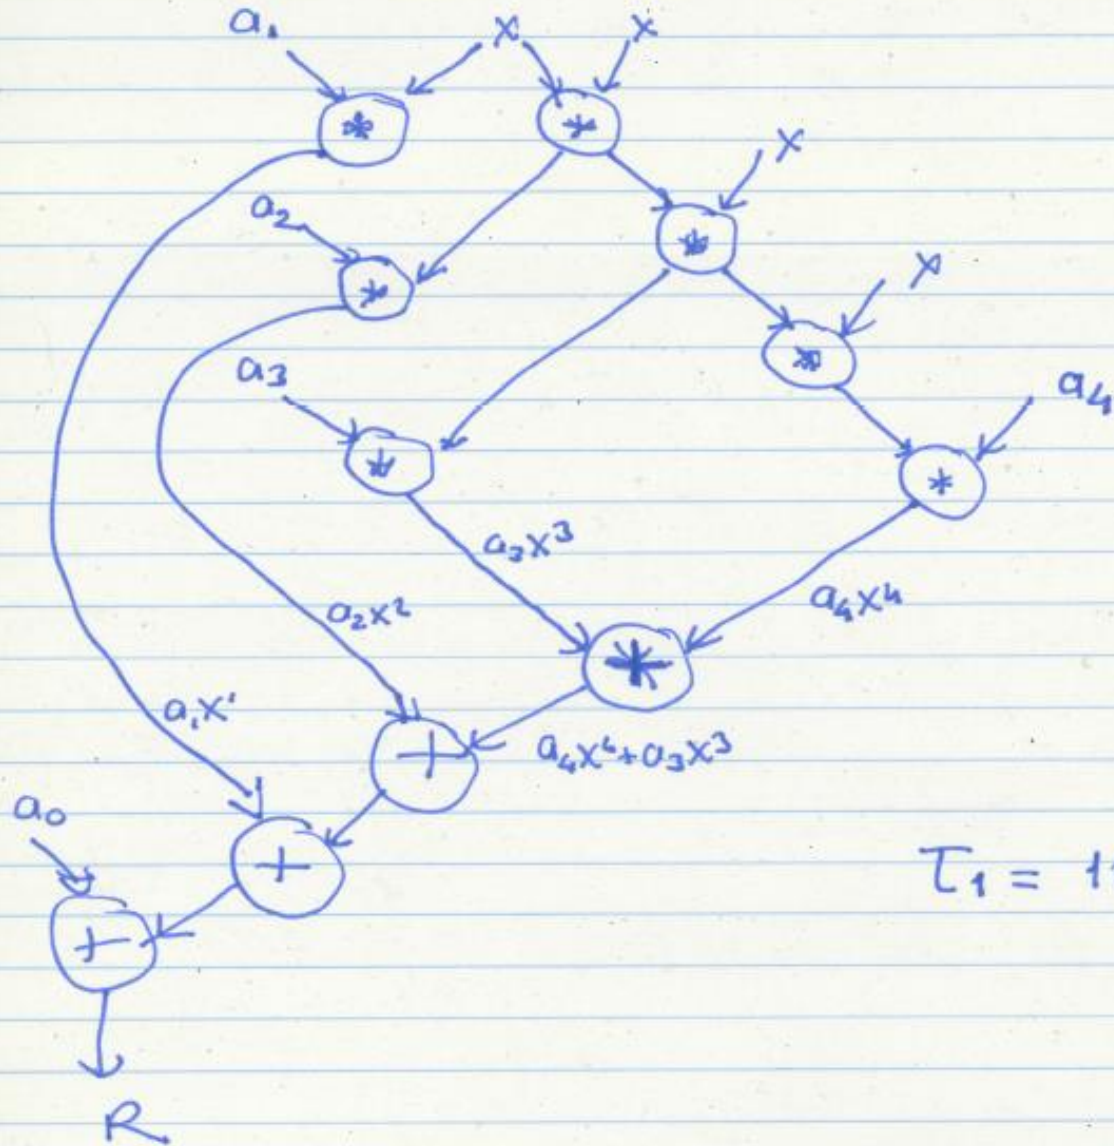 a₁ x x
* *
x
a₂ *
* x
a₃ *
a₄
* *
a₃x³
a₂x² a₄x⁴
*
a₁x¹
+ a₄x⁴+a₃x³
a₀
+ τ₁ = 11
+
R